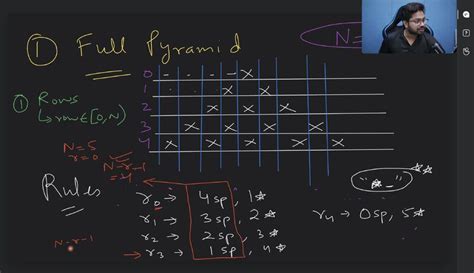 ① Full Pyramid
N=
0 - - - - x
1 . . . x x
2 x x x
3 x x x x
4 x x x x x
① Rows
↳ row ∈ [0, N)
N=5
r=0
N-r-1
=4
Rules
r0 → 4 sp, 1☆
r1 → 3 sp, 2☆
r2 → 2 sp, 3☆
→ r3 → 1 sp, 4☆
r4 → 0 sp, 5☆
N-r-1